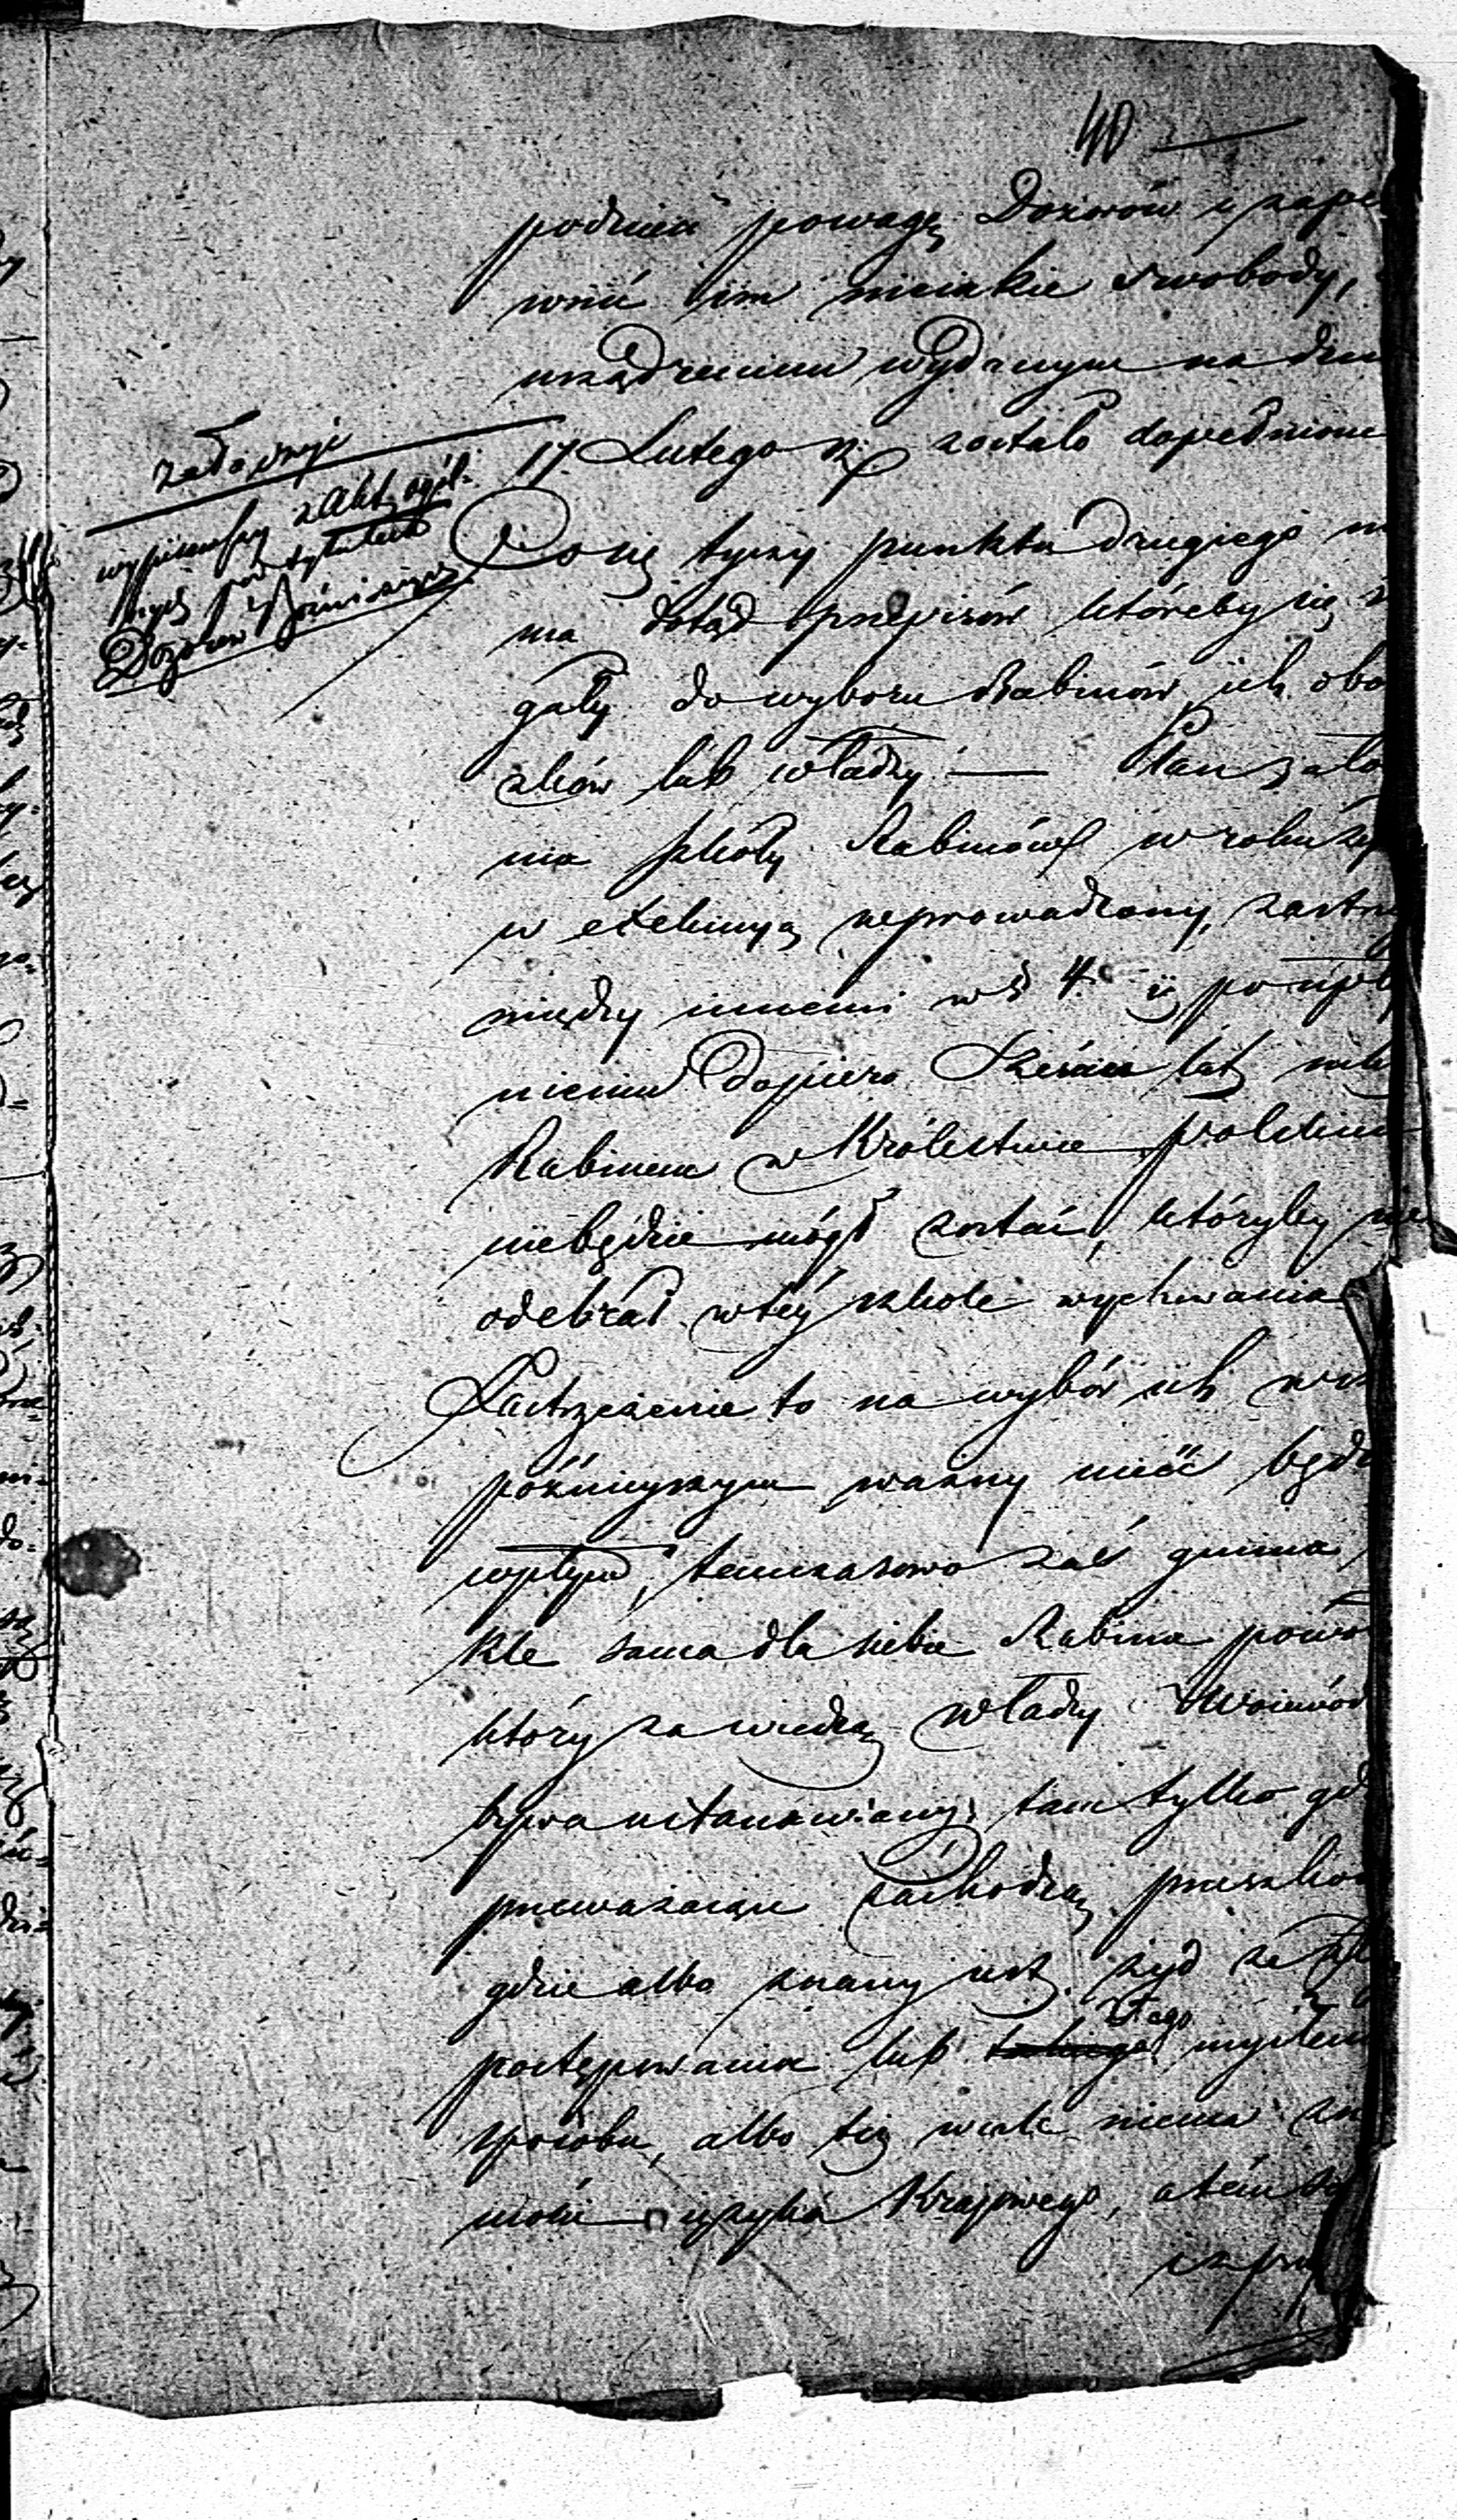 40
podnieść powagę Dozorów i zape
wnić im niejakie swobody,
urządzeniem wydanym na dniu
17 Lutego r. z. zostało dopełnione
Co się tyczy punktu drugiego nie
ma dotąd przepisów któreby się
gały do wyboru Rabinów, ich obo
zków lub władzy. — Plan zało
nia szkoły Rabinów w roku
w exekucyą wprowadzony, zastrz
między innemi w § 4. iż po upły
nieniu dopiero sześciu lat nikt
Rabinem w Królestwie Polskim
niebędzie mógł zostać, któryby nie
odebrał w tey szkole wychowania
Zastrzeżenie to na wybór ich
późnieyszym ważny mieć będzie
wpływ, tymczasowo zaś gmina
kle sama dla siebie Rabina
który za wiedzą władzy Woiewód
bywa ustanawiany, tam tylko gd
przeważaiące zachodzą przeszkod
gdzie albo znany iest żyd ze
postępowania lub myślenia
sposobu, albo też wcale niema zn
mości ięzyka Krajowego, a tém
załączyć
wypisawszy z Akt ogól-
nych pod tytułem
Dozorów Bóżniczych